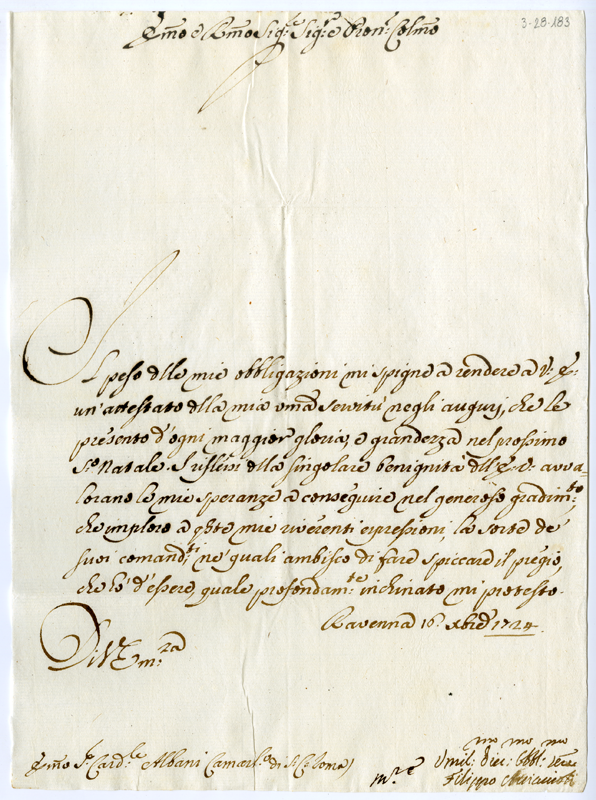 3-28-183
Em̃o e Rm̃o Sig.r Sig.r e Pron. Colm̃o
Il peso dlle mie obbligazioni mi spigne a rendere a V. E.
un'attestato dlla mia um̃a servitù negli augurj, che le
presento d'ogni maggior gloria, e grandezza nel prossimo
S.o Natale. I riflessi dlla singolare benignità dll'E. V. avva=
lorano le mie speranze a conseguire nel generoso gradim.to,
che imploro a qste mie riverenti espressioni, la sorte de'
suoi comand.ti, ne' quali ambisco di fare spiccare il pregio,
che hò d'essere, quale profondam.te inchinato mi protesto.
Ravenna 16. Xbre 1724.
Di V. Em.za
Em̃o S.r Card.le Albani Camarl.o di S.a Chiesa)
Umil.mo Div.mo Obbl.mo
Filippo